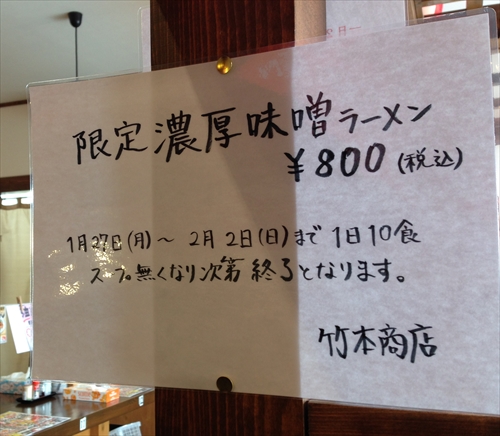 限定濃厚味噌ラーメン
¥800(税込)
1月27日(月)～2月2日(日)まで1日10食
スープ無くなり次第終了となります。
竹本商店